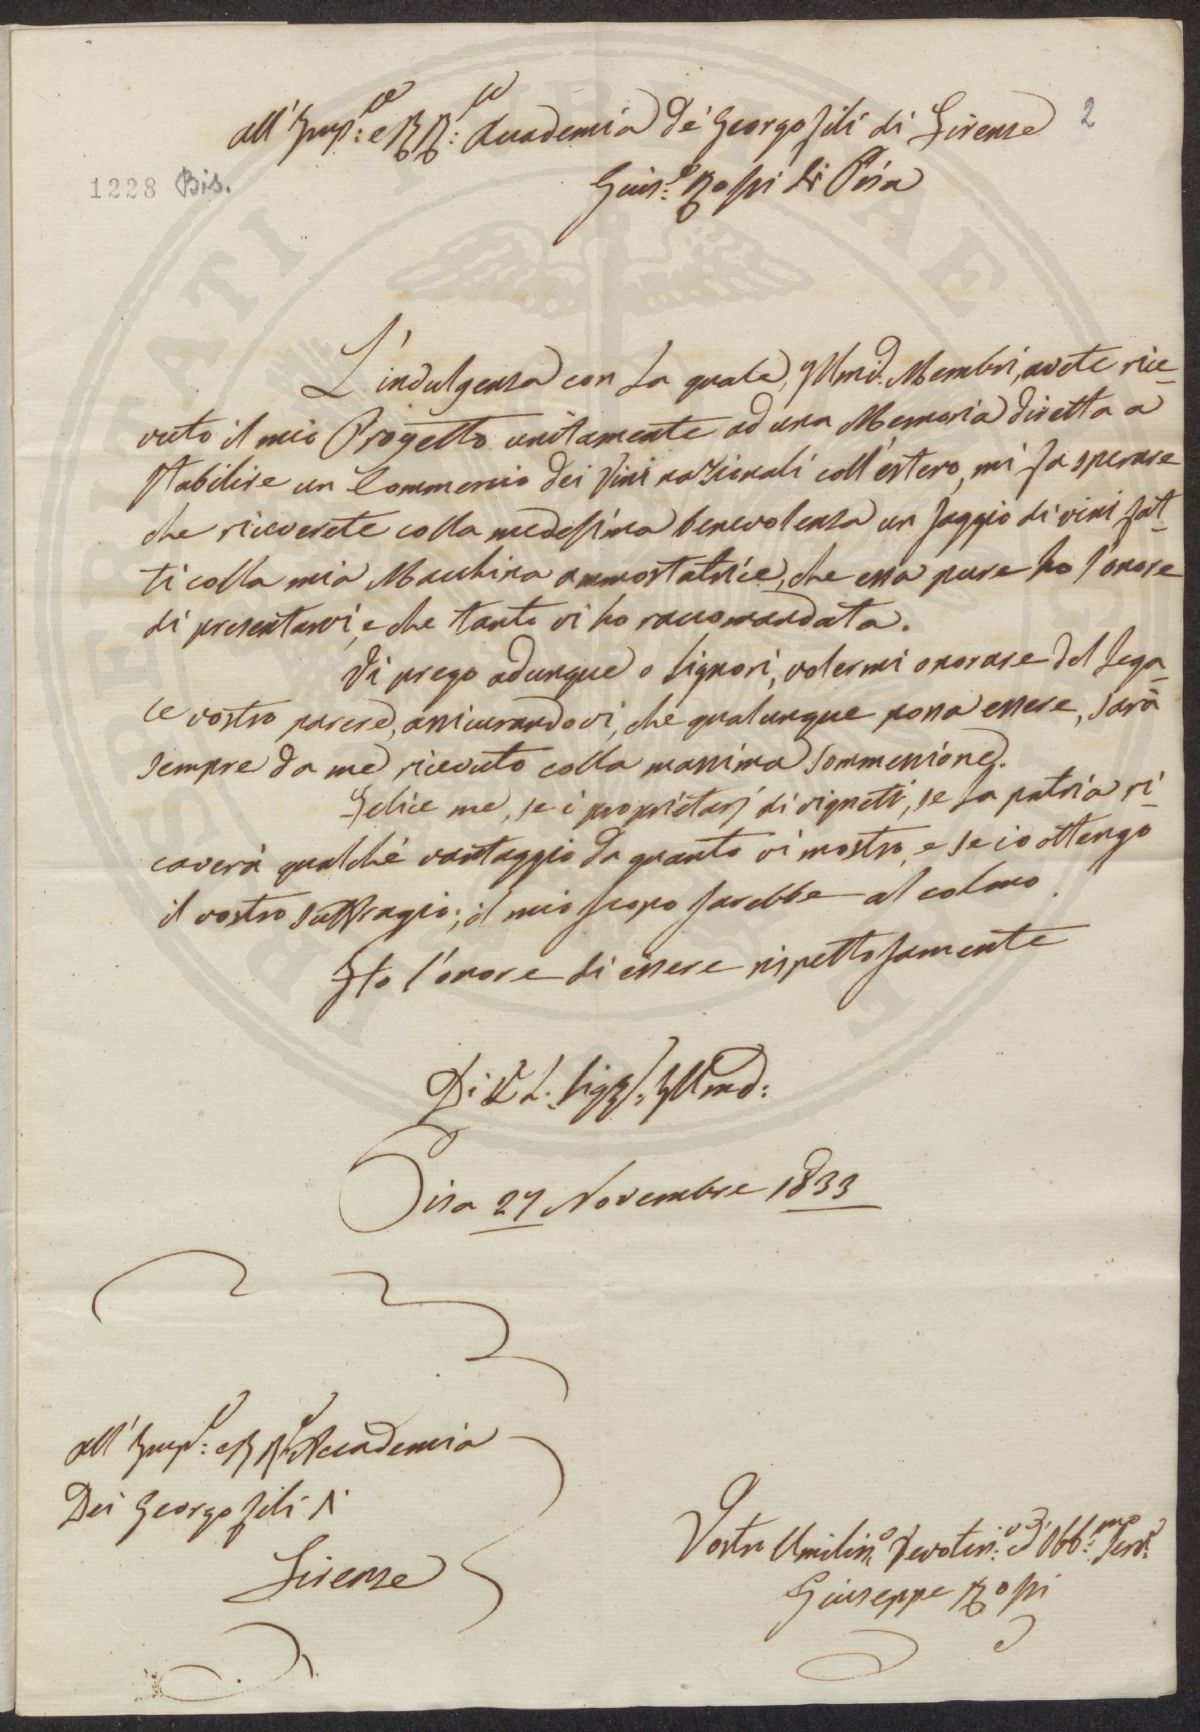 all'Imp:ce e RR:le Academia de' Georgofili di Firenze
2
Guis:e Rossi di Pisa
1228 Bis.
L'indulgenza con la quale, Illmi. Membri, avete rice-
vuto il mio Progetto unitamente ad una Memoria diretta a
stabilire un Commercio dei Vini nazionali coll'estero, mi fa sperare
che riceverete colla medessima benevolenza un saggio di vini fat-
ti colla mia Macchina ammostatrice, che essa pure ho l'onore
di presentarvi, e che tanto vi ho raccomandata.
Vi prego adunque o Signori, volermi onorare del sega-
ce vostro parere, assicurandovi, che qualunque possa essere, sarà
sempre da me ricevuto colla massima sommessione.
Felice me, se i proprietarj di vigneti, se la patria ri-
caverà qualche vantaggio da quanto vi mostro, e se io ottengo
il vostro suffragio; il mio scopo sarebbe al colmo.
Ho l'onore di essere rispettosamente
Di V.L. Sigri. Illmi:
Pisa 27 Novembre 1833
all'Imp:e e R R.e Accademia
Dei Georgofili di
Firenze
Vostro Umilis:o Devotis:o ed Obb:mo Serv:e
Giuseppe Rossi